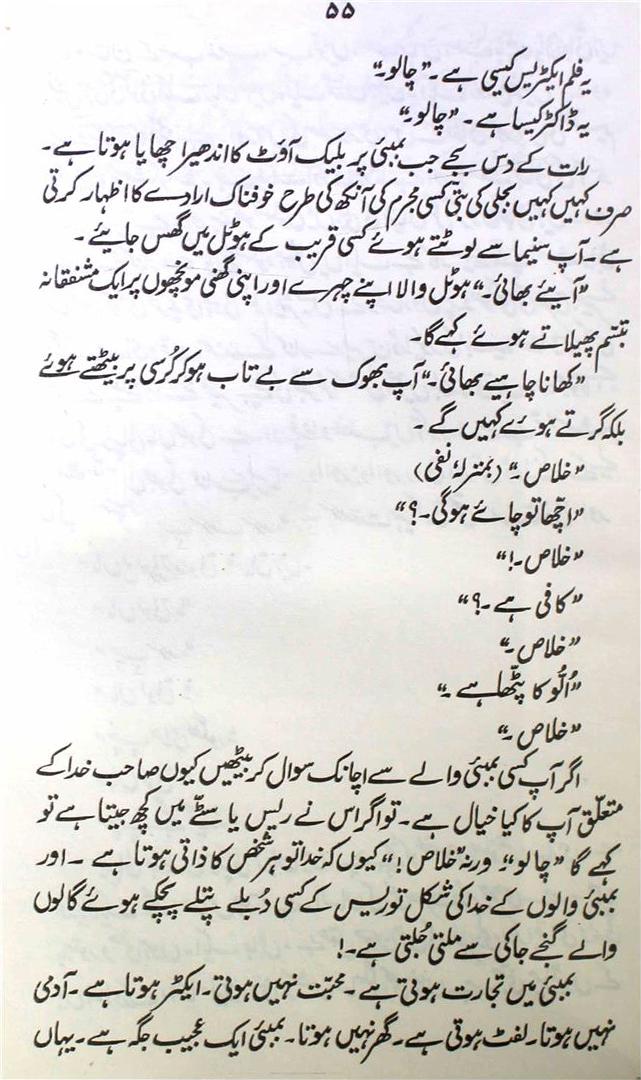 ۵۵
یہ فلم ایکٹریس کیسی ہے۔ ”چالو۔“
یہ ڈاکٹر کیسا ہے۔ ”چالو۔“
رات کے دس بجے جب بمبئی پر بلیک آوٹ کا اندھیرا چھایا ہوتا ہے۔
صرف کہیں کہیں بجلی کی بتی کسی مجرم کی آنکھ کی طرح خوفناک ارادے کا اظہار کرتی
ہے۔ آپ سنیما سے لوٹتے ہوئے کسی قریب کے ہوٹل میں گھس جایئے۔
”آیئے بھائی۔“ ہوٹل والا اپنے چہرے اور اپنی گھنی مونچھوں پر ایک مشفقانہ
تبسّم پھیلاتے ہوئے کہے گا۔
”کھانا چاہیے بھائی۔“ آپ بھوک سے بے تاب ہو کر کُرسی پر بیٹھتے ہوئے
بلکہ گرتے ہوئے کہیں گے۔
”خلاص۔“ (بمنزلہٴ نفی)
”اچھا تو چائے ہوگی۔؟“
”خلاص۔!“
”کافی ہے۔؟“
”خلاص۔“
”اُلّو کا پٹھا ہے۔“
”خلاص۔“
اگر آپ کسی بمبئی والے سے اچانک سوال کر بیٹھیں کیوں صاحب خدا کے
متعلّق آپ کا کیا خیال ہے۔ تو اگر اس نے ریس یا سٹّے میں کچھ جیتا ہے تو
کہے گا ”چالو“۔ ورنہ ”خلاص!“ کیوں کہ خدا تو ہر شخص کا ذاتی ہوتا ہے۔ اور
بمبئی والوں کے خدا کی شکل تو ریس کے کسی دُبلے پتلے پچکے ہوئے گالوں
والے گنجے جاکی سے ملتی جُلتی ہے۔!
بمبئی میں تجارت ہوتی ہے۔ محبّت نہیں ہوتی۔ ایکٹر ہوتا ہے۔ آدمی
نہیں ہوتا۔ لفٹ ہوتی ہے۔ گھر نہیں ہوتا۔ بمبئی ایک عجیب جگہ ہے۔ یہاں